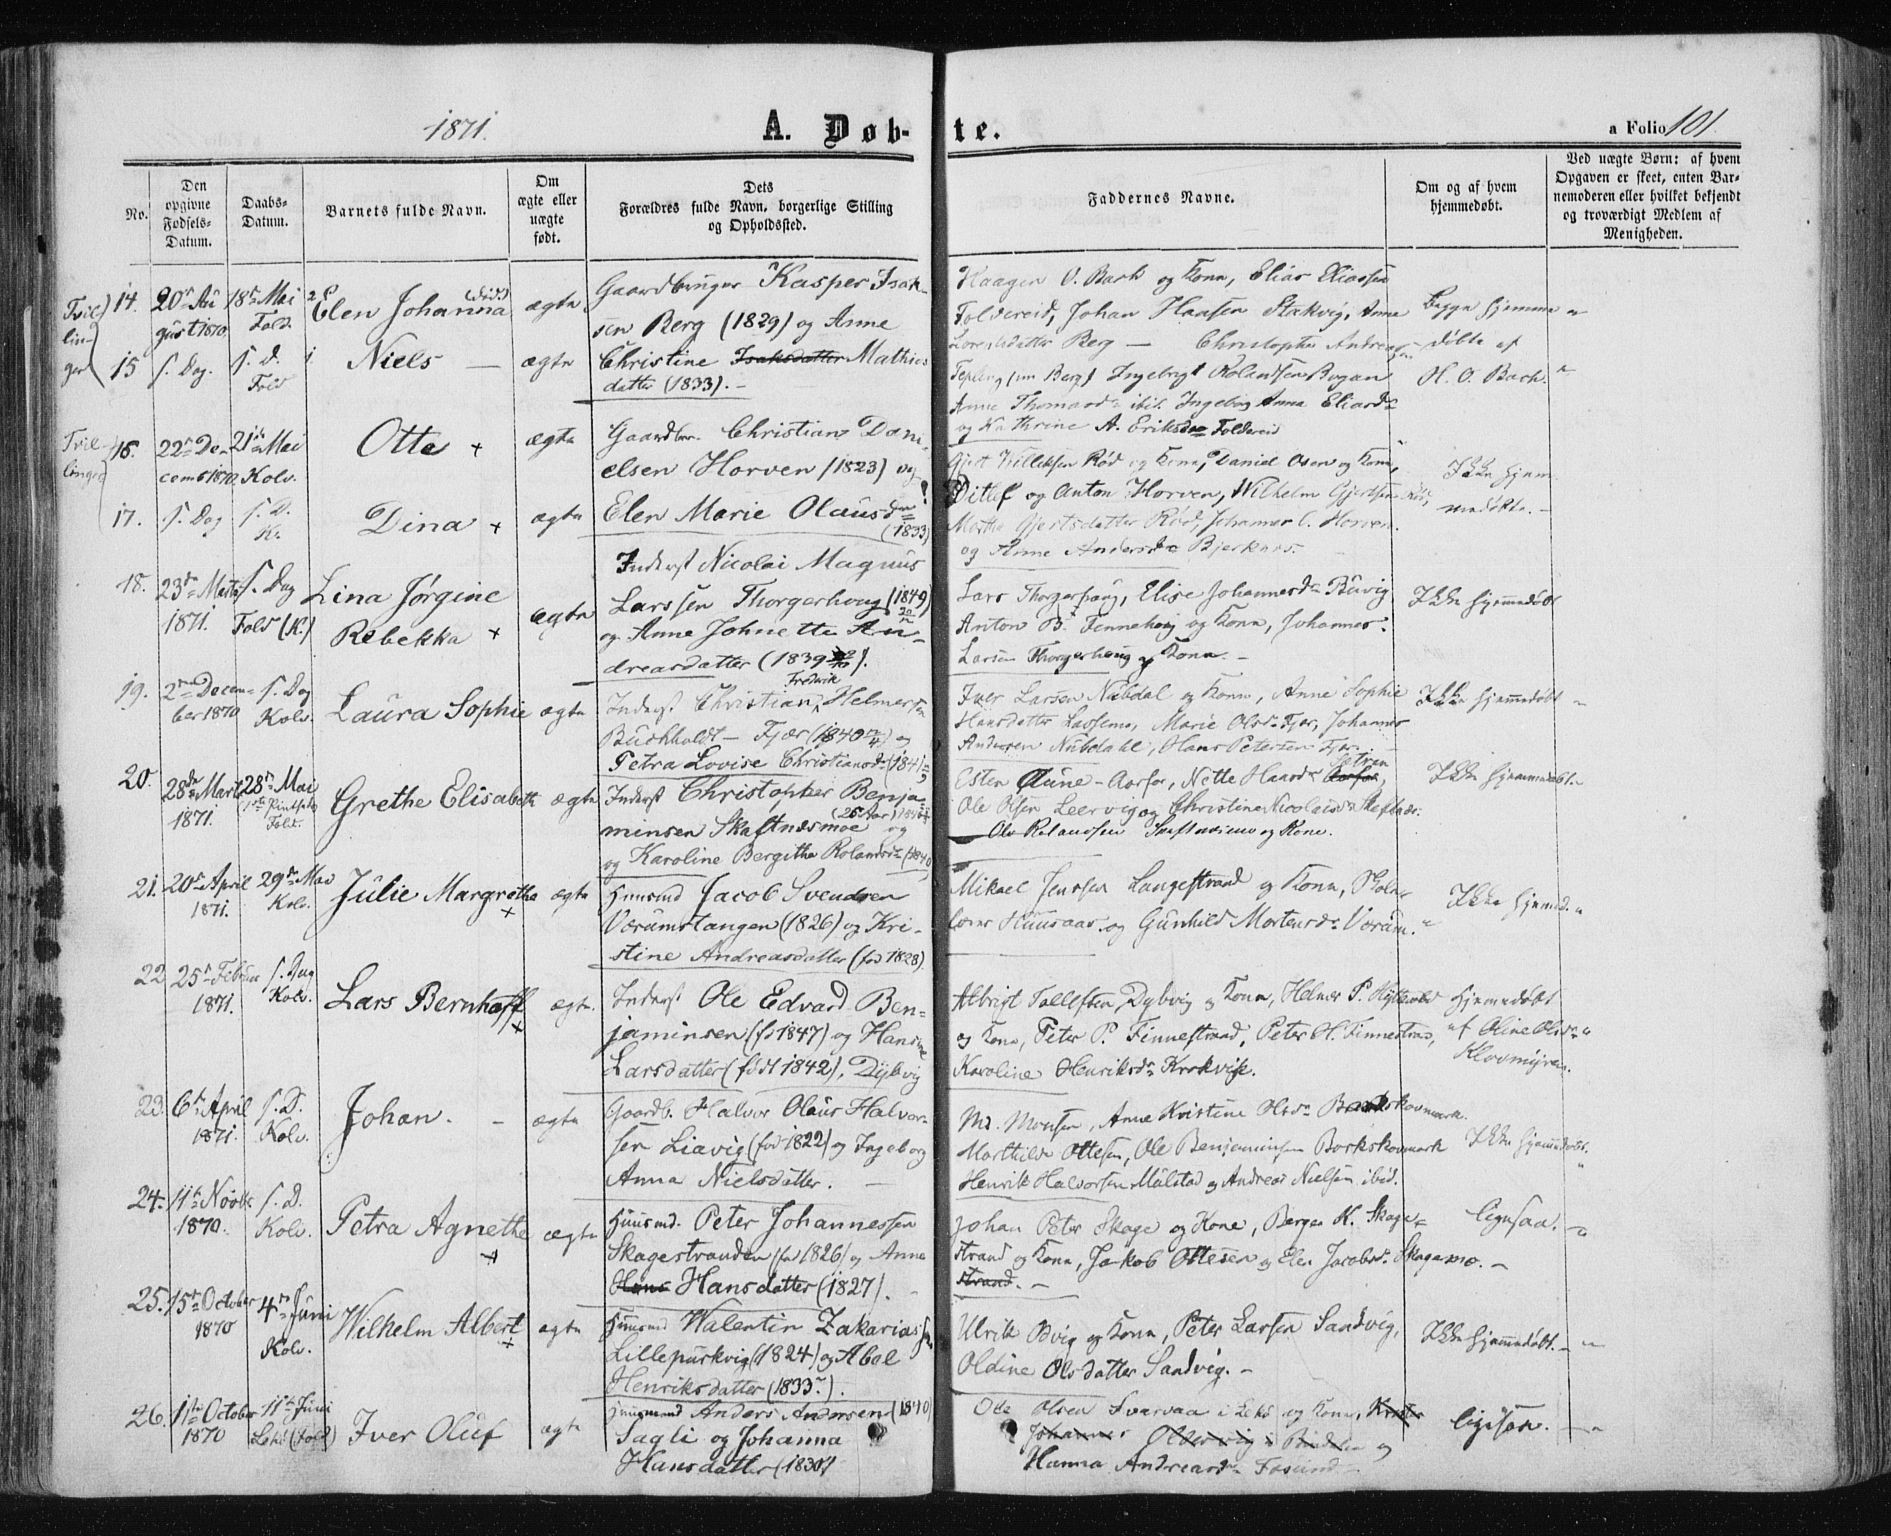 1871.
A. Døb-
te.
a Folio 101.
No.
Den
opgivne
Fødsels-
Datum.
Daabs-
Datum.
Barnets fulde Navn.
Om
ægte eller
uægte
født.
Dets
Forældres fulde Navn, borgerlige Stilling
og Opholdssted.
Faddernes Navne.
Om og af hvem
hjemmedøbt.
Ved uægte Børn: af hvem
Opgaven er skeet, enten Bar-
nemoderen eller hvilket bekjendt
og troværdigt Medlem af
Menigheden.
Tvil-
lin-
ger
14.
20de Au
gust 1870
18de Mai
Fold.
Elen Johanna
ægte
Gaardbruger Kasper Isak-
sen Berg (1829) og Anne
Christine Isaksdatter Mathias
datter (1833). -
Haagen O. Bach og Kone, Elias Eliassen
Foldereid, Johan Hansen Stakvig, Anne
Lorentsdatter Berg — Christopher Andreas
Begge hjemme
døbte af
O. Bach.
15
s. Dag.
s. D.
Fold
Niels —
ægte
Tepling (im Berg) Ingebrigt Rolandsen Bogan
Anne Thomasd. ibid. Ingeborg Anna Eliasd.
og Kathrine A. Eriksd. Foldereid
Tvil-
linger
16.
22de De-
cemb 1870
21de Mai
Kolv.
Otte +
ægte
Gaardbr. Christian Dani-
elsen Horven (1823) og
Elen Marie Olausd.
(1833)
Gjert Kone, Daniel Osen og Kone,
Ditlef og Anton Horven, Wilhelm Gjertsen
Martha Gjertsdatter Rød, Johannes C. Horven
og Anne Andersd. Bjerknes.
Ikke hjem
medøbte. -
17.
s. Dag
s. D.
K.
Dina +
ægte
18.
23de Marts
1871.
s. Dag
Fold (K.)
Lina Jørgine
Rebekka +
ægte
Inderst Nicolai Magnus
Larssen Thorgerhoug (1849)
og Anne Johnetta An-
dreasdatter (1839).
Lars Thorgerhaug, Elise Johannesd. Buvig
Anton B. Finnehoug og Kone, Johannes
Larsen Thorgerhoug og Kone. -
Ikke hjemmedøbt
19.
2den Decem-
ber 1870
s. Dag
Kolv.
Laura Sophie
ægte
Inderst Christian Fredrik Helmersen
Buchholdt — Fjær (1840) og
Petra Lovise Christiansd. (1841)
Iver Larsen Nubdal og Kone, Anne Sophie
Hansdatter Lassemo, Marie Olsd. Fjær, Johannes
Andersen Nubdahl, Hans Petersen Fjær.
Ikke hjemmedøbt
20.
28de Marts
1871.
28de Mai
1ste Pintsed.
Fold.
Grethe Elisabeth
ægte
Inderst Christopher Benja-
minsen Skaftnæsmoe og
og Karoline Bergitha Rolandsd. (1840)
Esten Aune - Aarfor, Nette Hansd. Aarfor,
Ole Olsen Leervig og Christine Nicolaisd.
Ole Rolandsen Skaftnæsmo og Kone.
Ikke hjemmedøbt.
21.
20de April
1871.
29de Mai
Kolv.
Julie Margrethe
+
ægte
Huusmd Jacob Svendsen
Værumstangen (1826) og Kri-
stine Andreasdatter (fød 1828).
Mikael Jenssen Langestrand og Kone, Skole-
lærer Huusaas og Gunhild Mortensd. Værum.
Ikke hjemmed.
22
25de Februar
1871.
s. Dag
Kolv.
Lars Bernhoff
+
ægte.
Inderst Ole Edvard Ben-
jaminsen (fd 1847) og Hansine
Larsdatter (født 1842), Dybvig
Albrigt Tollefsen Dybvig og Kone, Helmer P.
og Kone, Peter P. Finnestrand, Peter H. Finnestrand,
Karoline Henriksd. Krokvik.
Hjemmedøbt
af Oline Olsd.
Klovmyren.
23.
6te April
1871.
s. D.
Kolv.
Johan. -
ægte
Gaardb. Halvor Olaus Halvor-
sen Liavig (fød 1822) og Ingeborg
Anna Nielsdatter. —
Md. Monsen, Anne Kristine Olsd. Barkskovmark.
Marthilde Ottesen, Ole Benjaminsen Barkskovmark
Henrik Halvorsen Mulstad og Andreas Nielsen ibid.
Ikke hjemmedøbt.
24.
11te Novbr.
1870.
s. D.
Kolv.
Petra Agnethe
+
ægte
Huusmd. Peter Johannessen
Skagestranden (fød 1826) og Anne
Hans Hansdatter (1827).
Johan Peter Skage og Kone, Berger K. Skage-
strand og Kone, Jakob Ottesen og Elen Jacobsd. Skagemo. -
strand. -
ligesaa.
25.
15de October
1870
4de Juni
Kolv.
Wilhelm Albert
+
ægte
Huusmd Valentin Zakariassen
Lillepurkvig (1824) og Abel
Henriksdatter (1833).
Ulrik Odvig og Kone, Peter Larsen Sandvig,
Oldine Olsdatter Sandvig. -
Ikke hjemmedøbt. -
26.
1ste October
1870
11te Juni
Leka (Fold)
Iver Oluf
ægte
Huusmand Anders Andersen (1840)
Sagli og Johanna
Hansdatter (1830)
Ole Olsen Svarvaa i Leka og Kone,
Johannes i Bindalen og
Hanna Andreasd. Fosund
ligesaa.